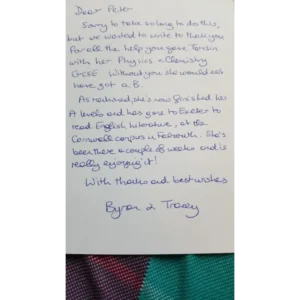 Dear Peter
Sorry to take so long to do this,
but we wanted to write to thank you
for all the help you gave Tamsin
with her Physics & Chemistry
GCSE. Without you she would not
have got a B.
As mentioned, she's now finished her
A levels and has gone to Exeter to
read English Literature, at the
Cornwall campus in Falmouth. She's
been there a couple of weeks and is
really enjoying it!
With thanks and best wishes
Byron & Tracey